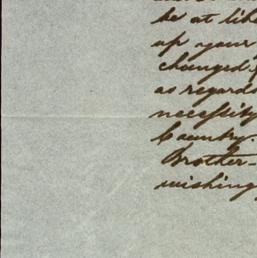 be at like
up your
changed
as regards
necessity
Country.
Brother-
wishing